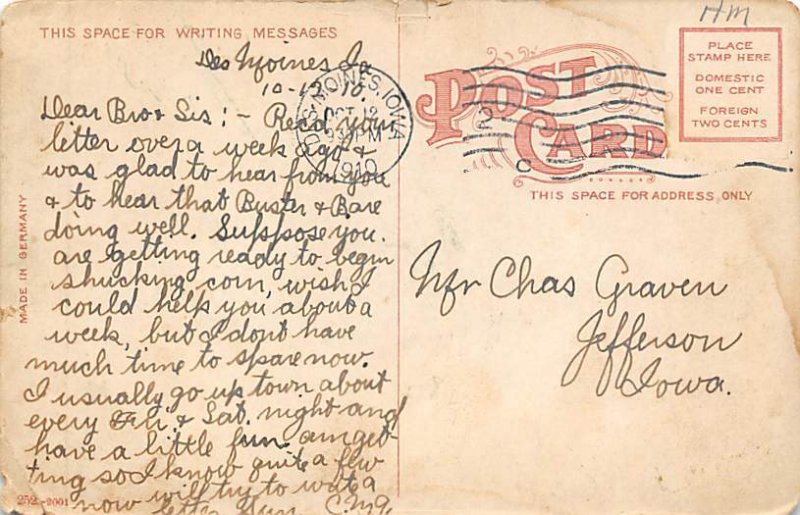 THIS SPACE FOR WRITING MESSAGES
Des Moines, Ia
10-12-10.
Dear Bro & Sis: - Recd your
letter over a week ago &
was glad to hear from you
& to hear that Buster & Bare
doing well. Suppose you
are getting ready to begin
shucking corn, wish I
could help you about a
week, but I dont have
much time to spare now.
I usually go up town about
every Fri. & Sat. night and
have a little fun. am get-
ting so I know quite a few
now will try to write a
letter Sun. C.M.G.
MADE IN GERMANY
252-2001
DES MOINES, IOWA
OCT 12
1910
HM
POST CARD
PLACE
STAMP HERE
DOMESTIC
ONE CENT
FOREIGN
TWO CENTS
THIS SPACE FOR ADDRESS ONLY
Mr Chas Graven
Jefferson
Iowa.